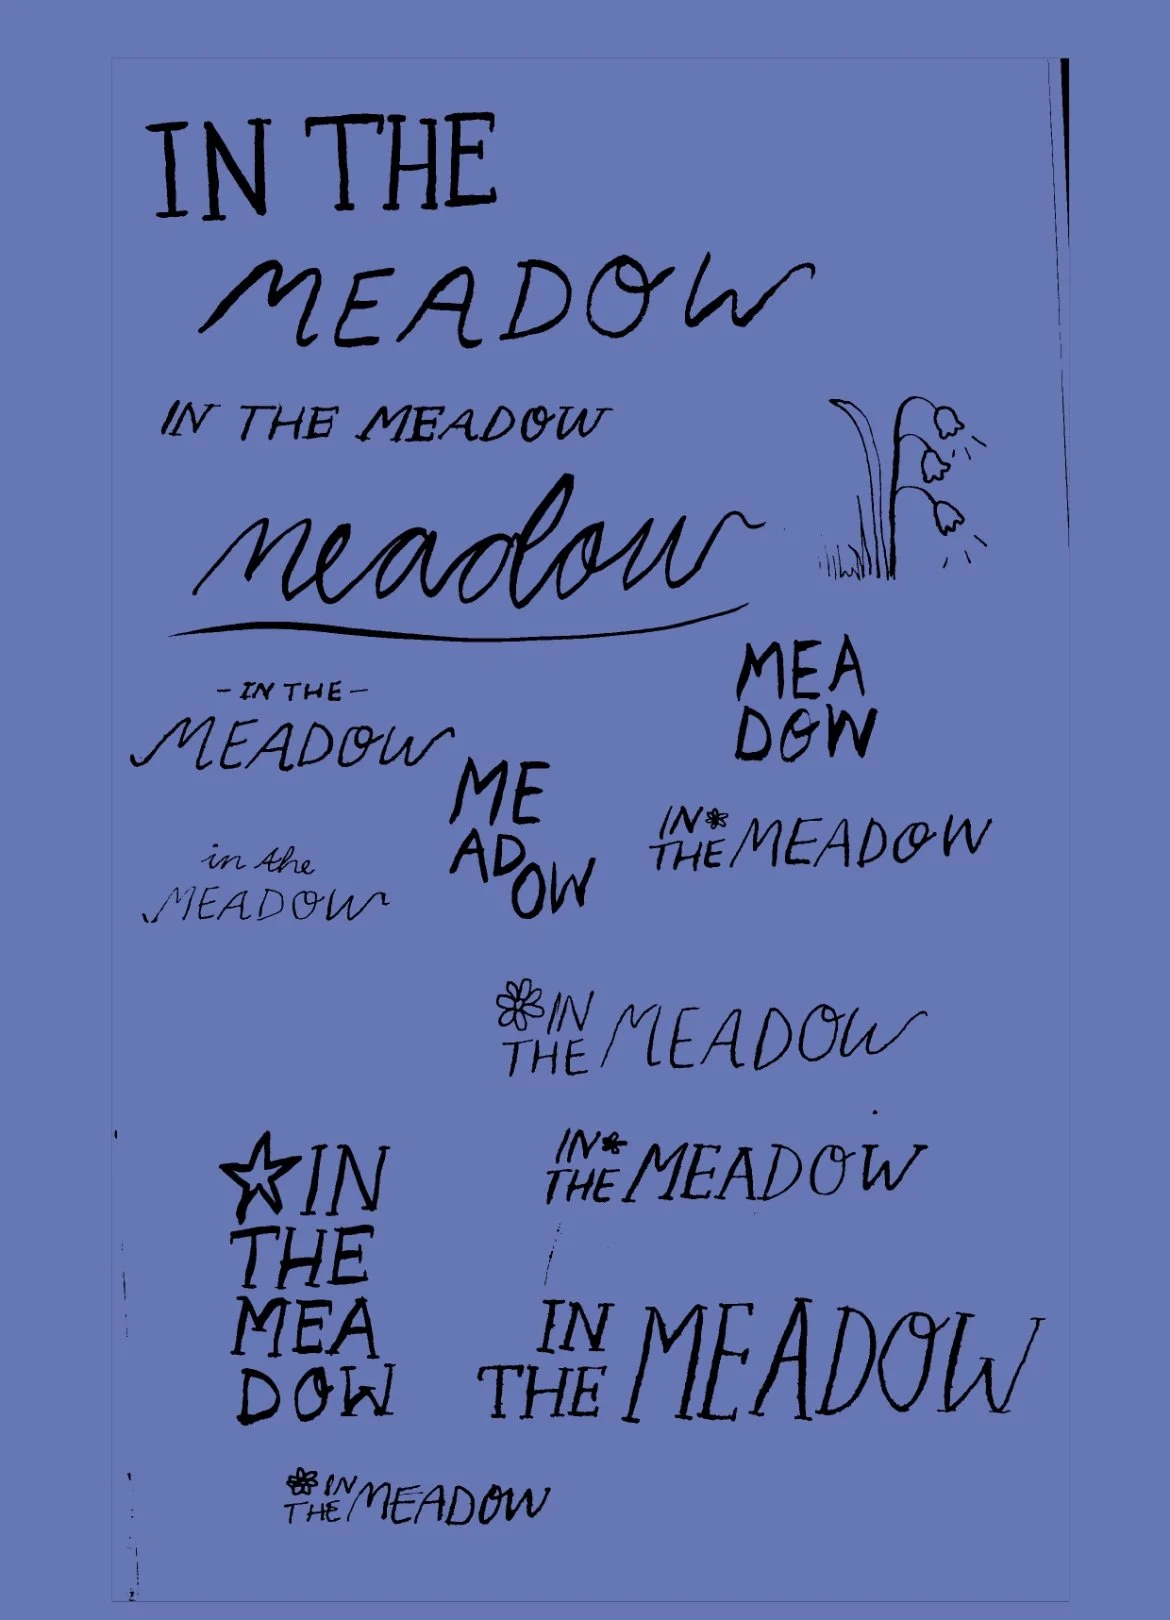 IN THE
MEADOW
IN THE MEADOW
meadow
- IN THE -
MEADOW
MEA
DOW
ME
AD
OW
IN
THE MEADOW
in the
MEADOW
IN
THE MEADOW
IN
THE
MEA
DOW
IN
THE MEADOW
IN
THE MEADOW
IN
THE MEADOW